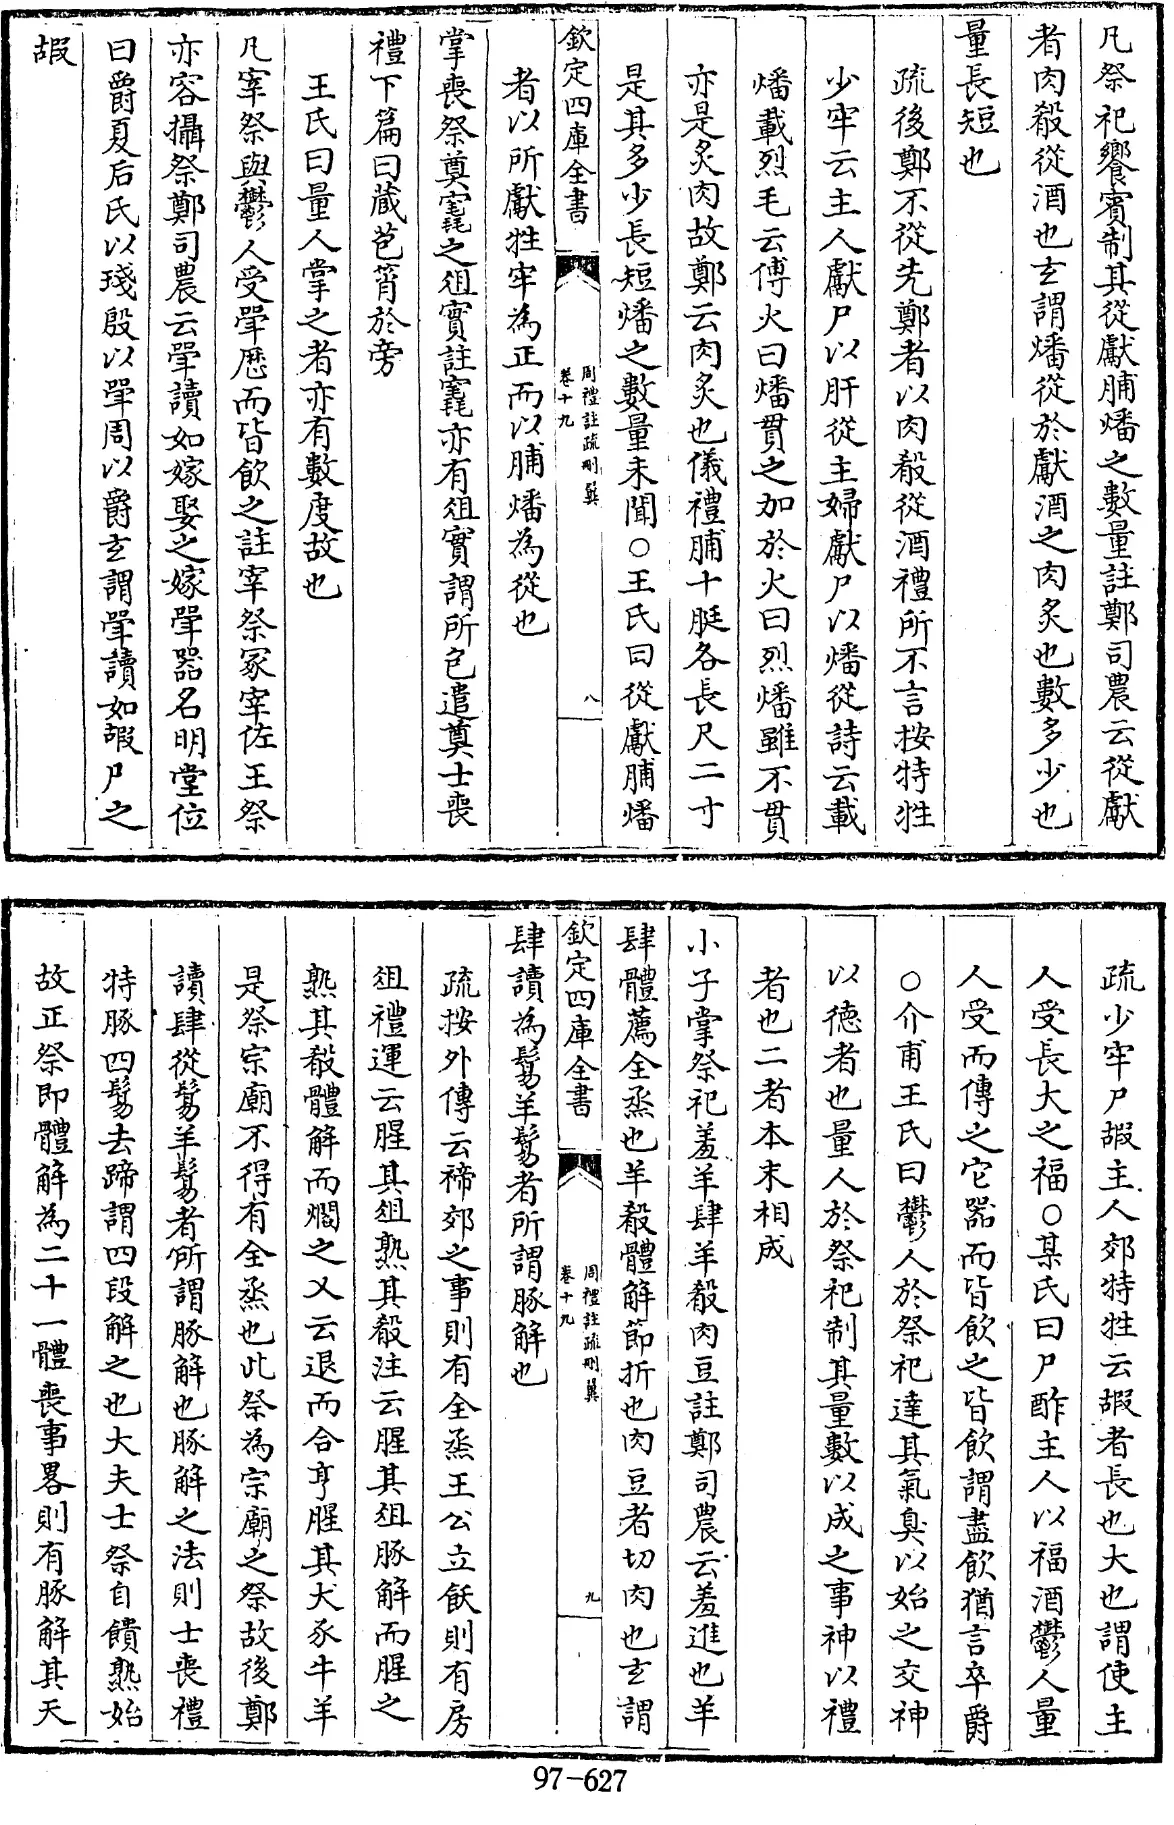 凡祭祀饗賔制其從獻脯燔之數量註鄭司農云從獻
者肉殽從酒也玄謂燔從於獻酒之肉炙也數多少也
量長短也
疏後鄭不從先鄭者以肉殽從酒禮所不言按特牲
少牢云主人獻尸以肝從主婦獻尸以燔從詩云載
燔載烈毛云傅火曰燔貫之加於火曰烈燔雖不貫
亦是炙肉故鄭云肉炙也儀禮脯十脡各長尺二寸
是其多少長短燔之數量未聞○王氏曰從獻脯燔
欽定四庫全書
周禮註疏刪翼
卷十九
八
者以所獻牲牢為正而以脯燔為從也
掌喪祭奠竁之俎實註竁亦有俎實謂所包遣奠士喪
禮下篇曰藏苞筲於旁
王氏曰量人掌之者亦有數度故也
凡宰祭與鬱人受斝歴而皆飲之註宰祭冢宰佐王祭
亦容攝祭鄭司農云斝讀如嫁娶之嫁斝器名明堂位
曰爵夏后氏以琖殷以斝周以爵玄謂斝讀如嘏尸之
嘏
疏少牢尸嘏主人郊特牲云嘏者長也大也謂使主
人受長大之福○某氏曰尸酢主人以福酒鬱人量
人受而傳之它器而皆飲之皆飲謂盡飲猶言卒爵
○介甫王氏曰鬱人於祭祀達其氣臭以始之交神
以德者也量人於祭祀制其量數以成之事神以禮
者也二者本末相成
小子掌祭祀羞羊肆羊殽肉豆註鄭司農云羞進也羊
肆體薦全烝也羊殽體解節折也肉豆者切肉也玄謂
欽定四庫全書
周禮註疏刪翼
卷十九
九
肆讀為鬄羊鬄者所謂豚解也
疏按外傳云禘郊之事則有全烝王公立飫則有房
俎禮運云腥其俎熟其殽注云腥其俎豚解而腥之
熟其殽體解而爓之又云退而合亨腥其犬豕牛羊
是祭宗廟不得有全烝也此祭為宗廟之祭故後鄭
讀肆從鬄羊鬄者所謂豚解也豚解之法則士喪禮
特豚四鬄去蹄謂四段解之也大夫士祭自饋熟始
故正祭即體解為二十一體喪事畧則有豚解其天
97-627